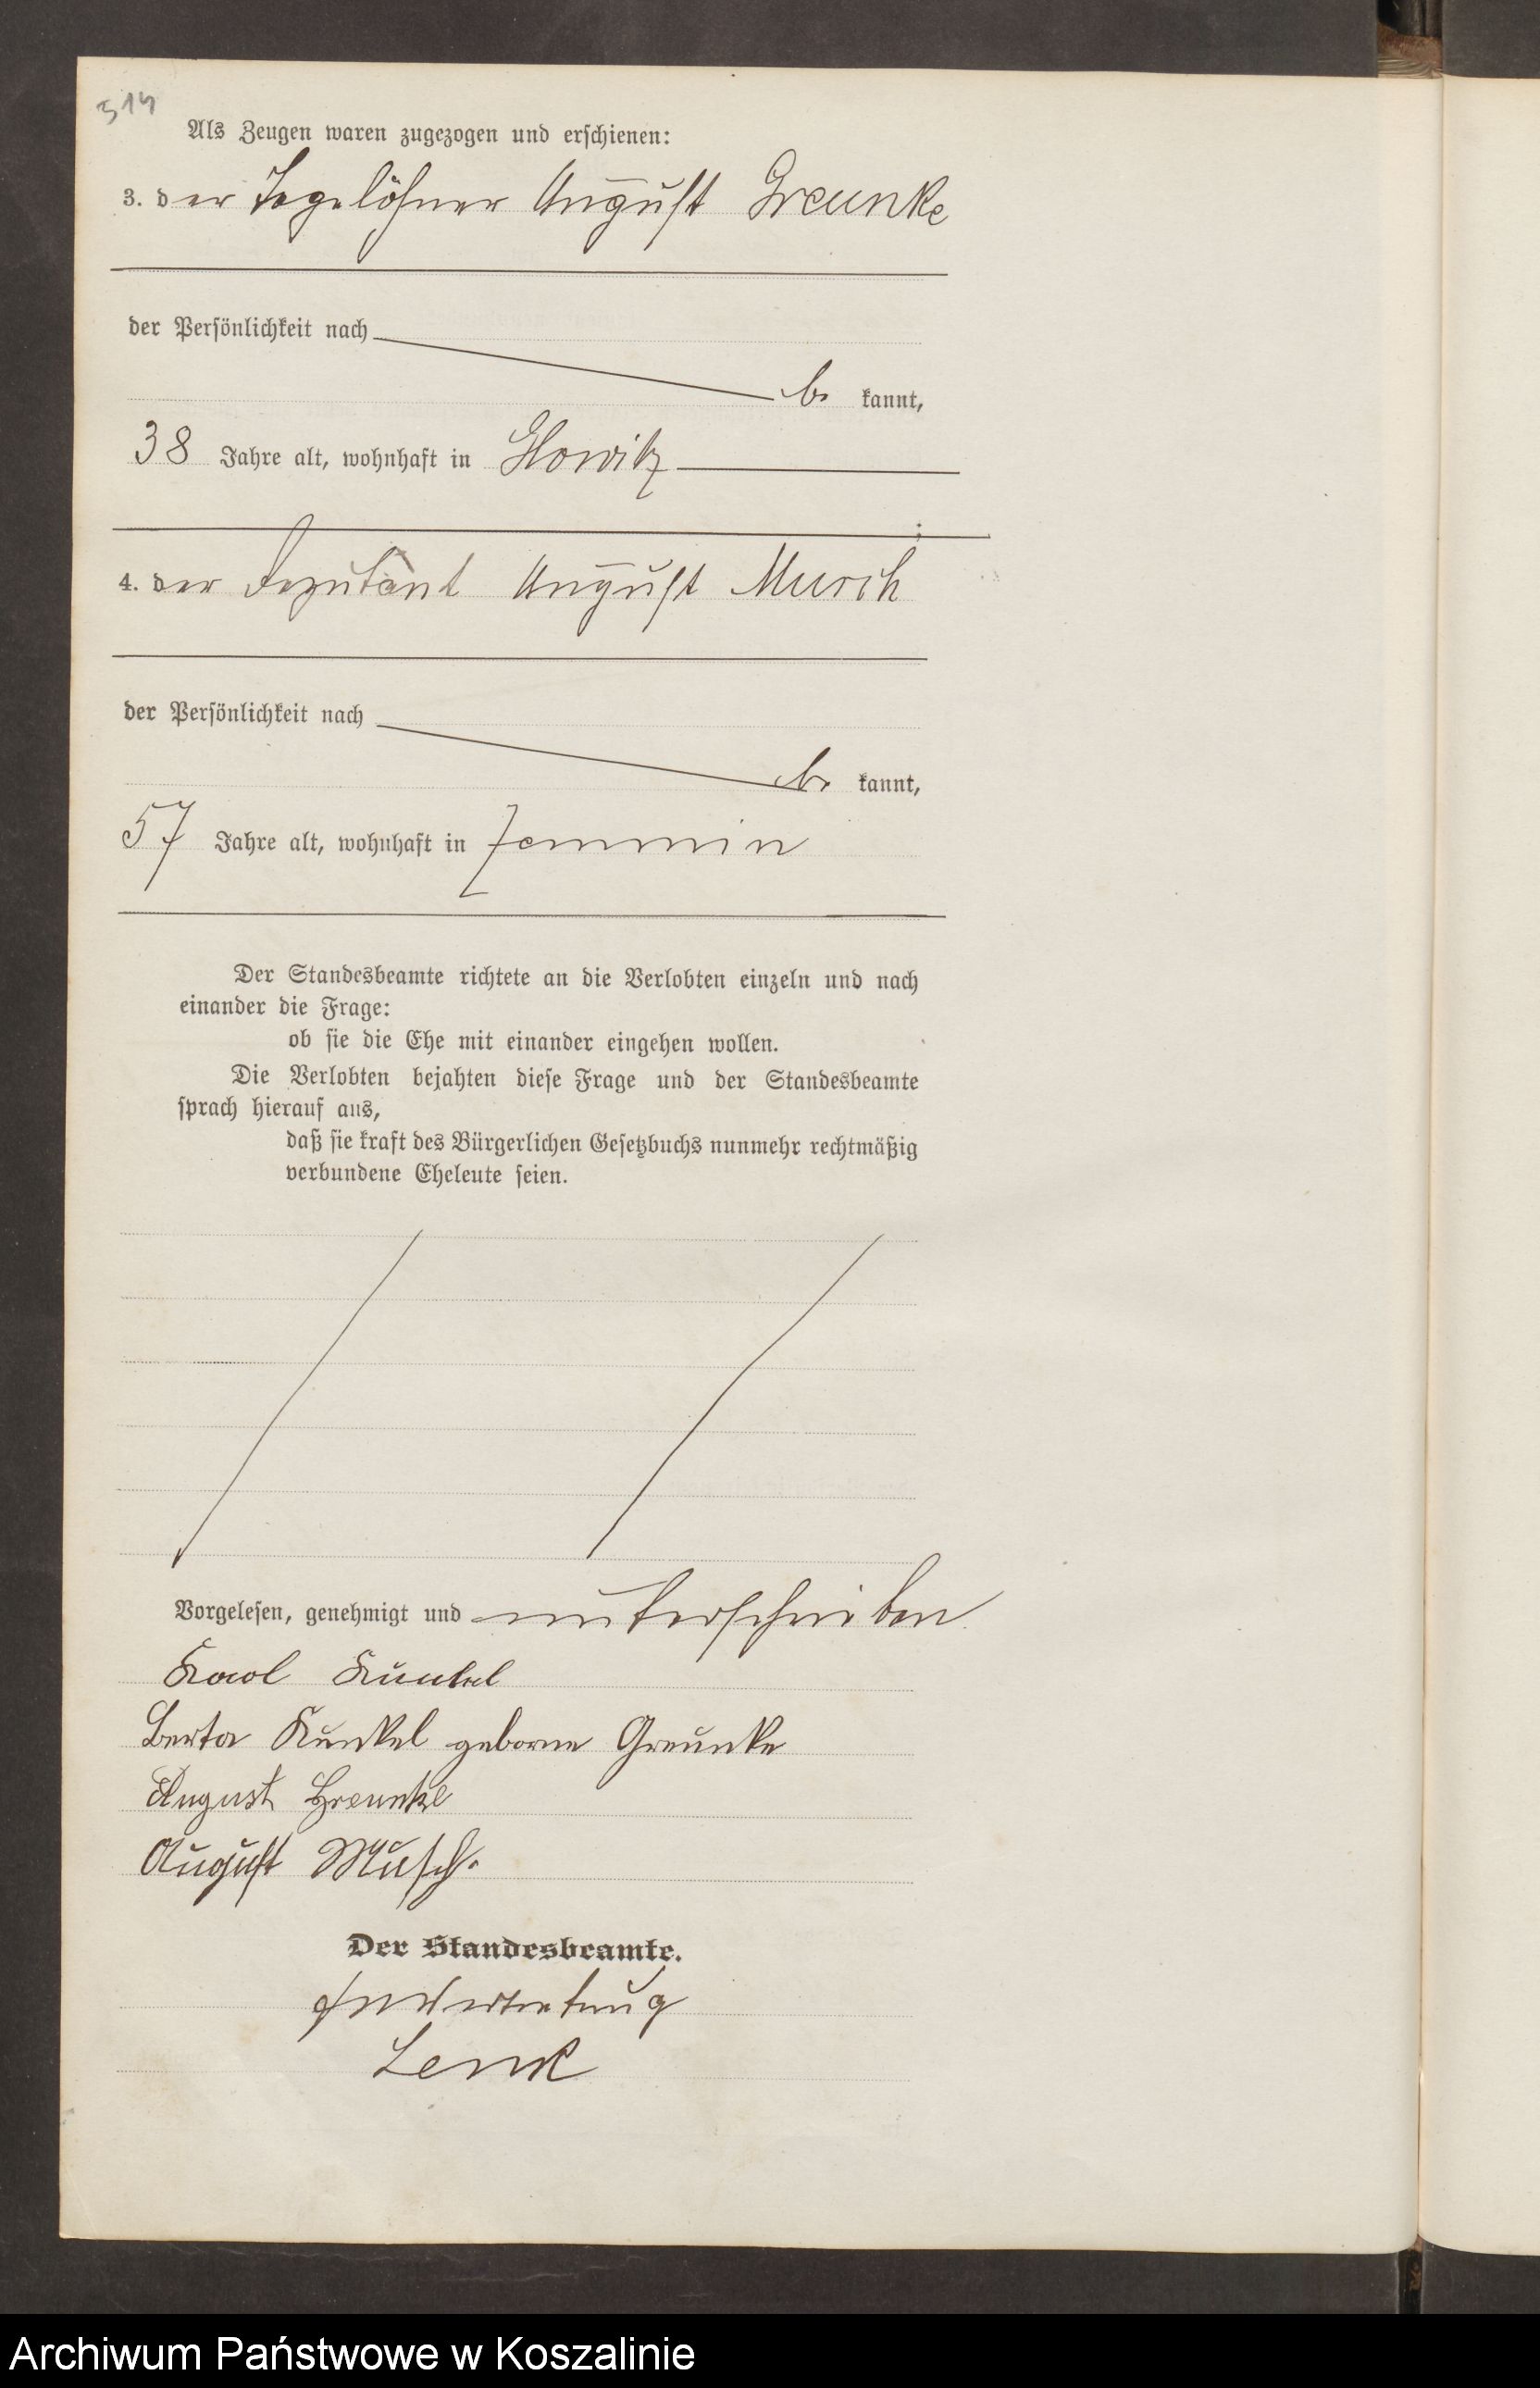 314
Als Zeugen waren zugezogen und erschienen:
3. der Tagelöhner August Greunke
der Persönlichkeit nach
be kannt,
38 Jahre alt, wohnhaft in Glowitz
;
4. der Deputant August Musch
der Persönlichkeit nach
be kannt,
57 Jahre alt, wohnhaft in Zemmin
Der Standesbeamte richtete an die Verlobten einzeln und nach
einander die Frage:
ob sie die Ehe mit einander eingehen wollen.
Die Verlobten bejahten diese Frage und der Standesbeamte
sprach hierauf aus,
daß sie kraft des Bürgerlichen Gesetzbuchs nunmehr rechtmäßig
verbundene Eheleute seien.
Vorgelesen, genehmigt und unterschrieben
Karl Kunkel
Berta Kunkel geborne Greunke
August Greunke
August Musch.
Der Standesbeamte.
In Vertretung
Lenk
Archiwum Państwowe w Koszalinie